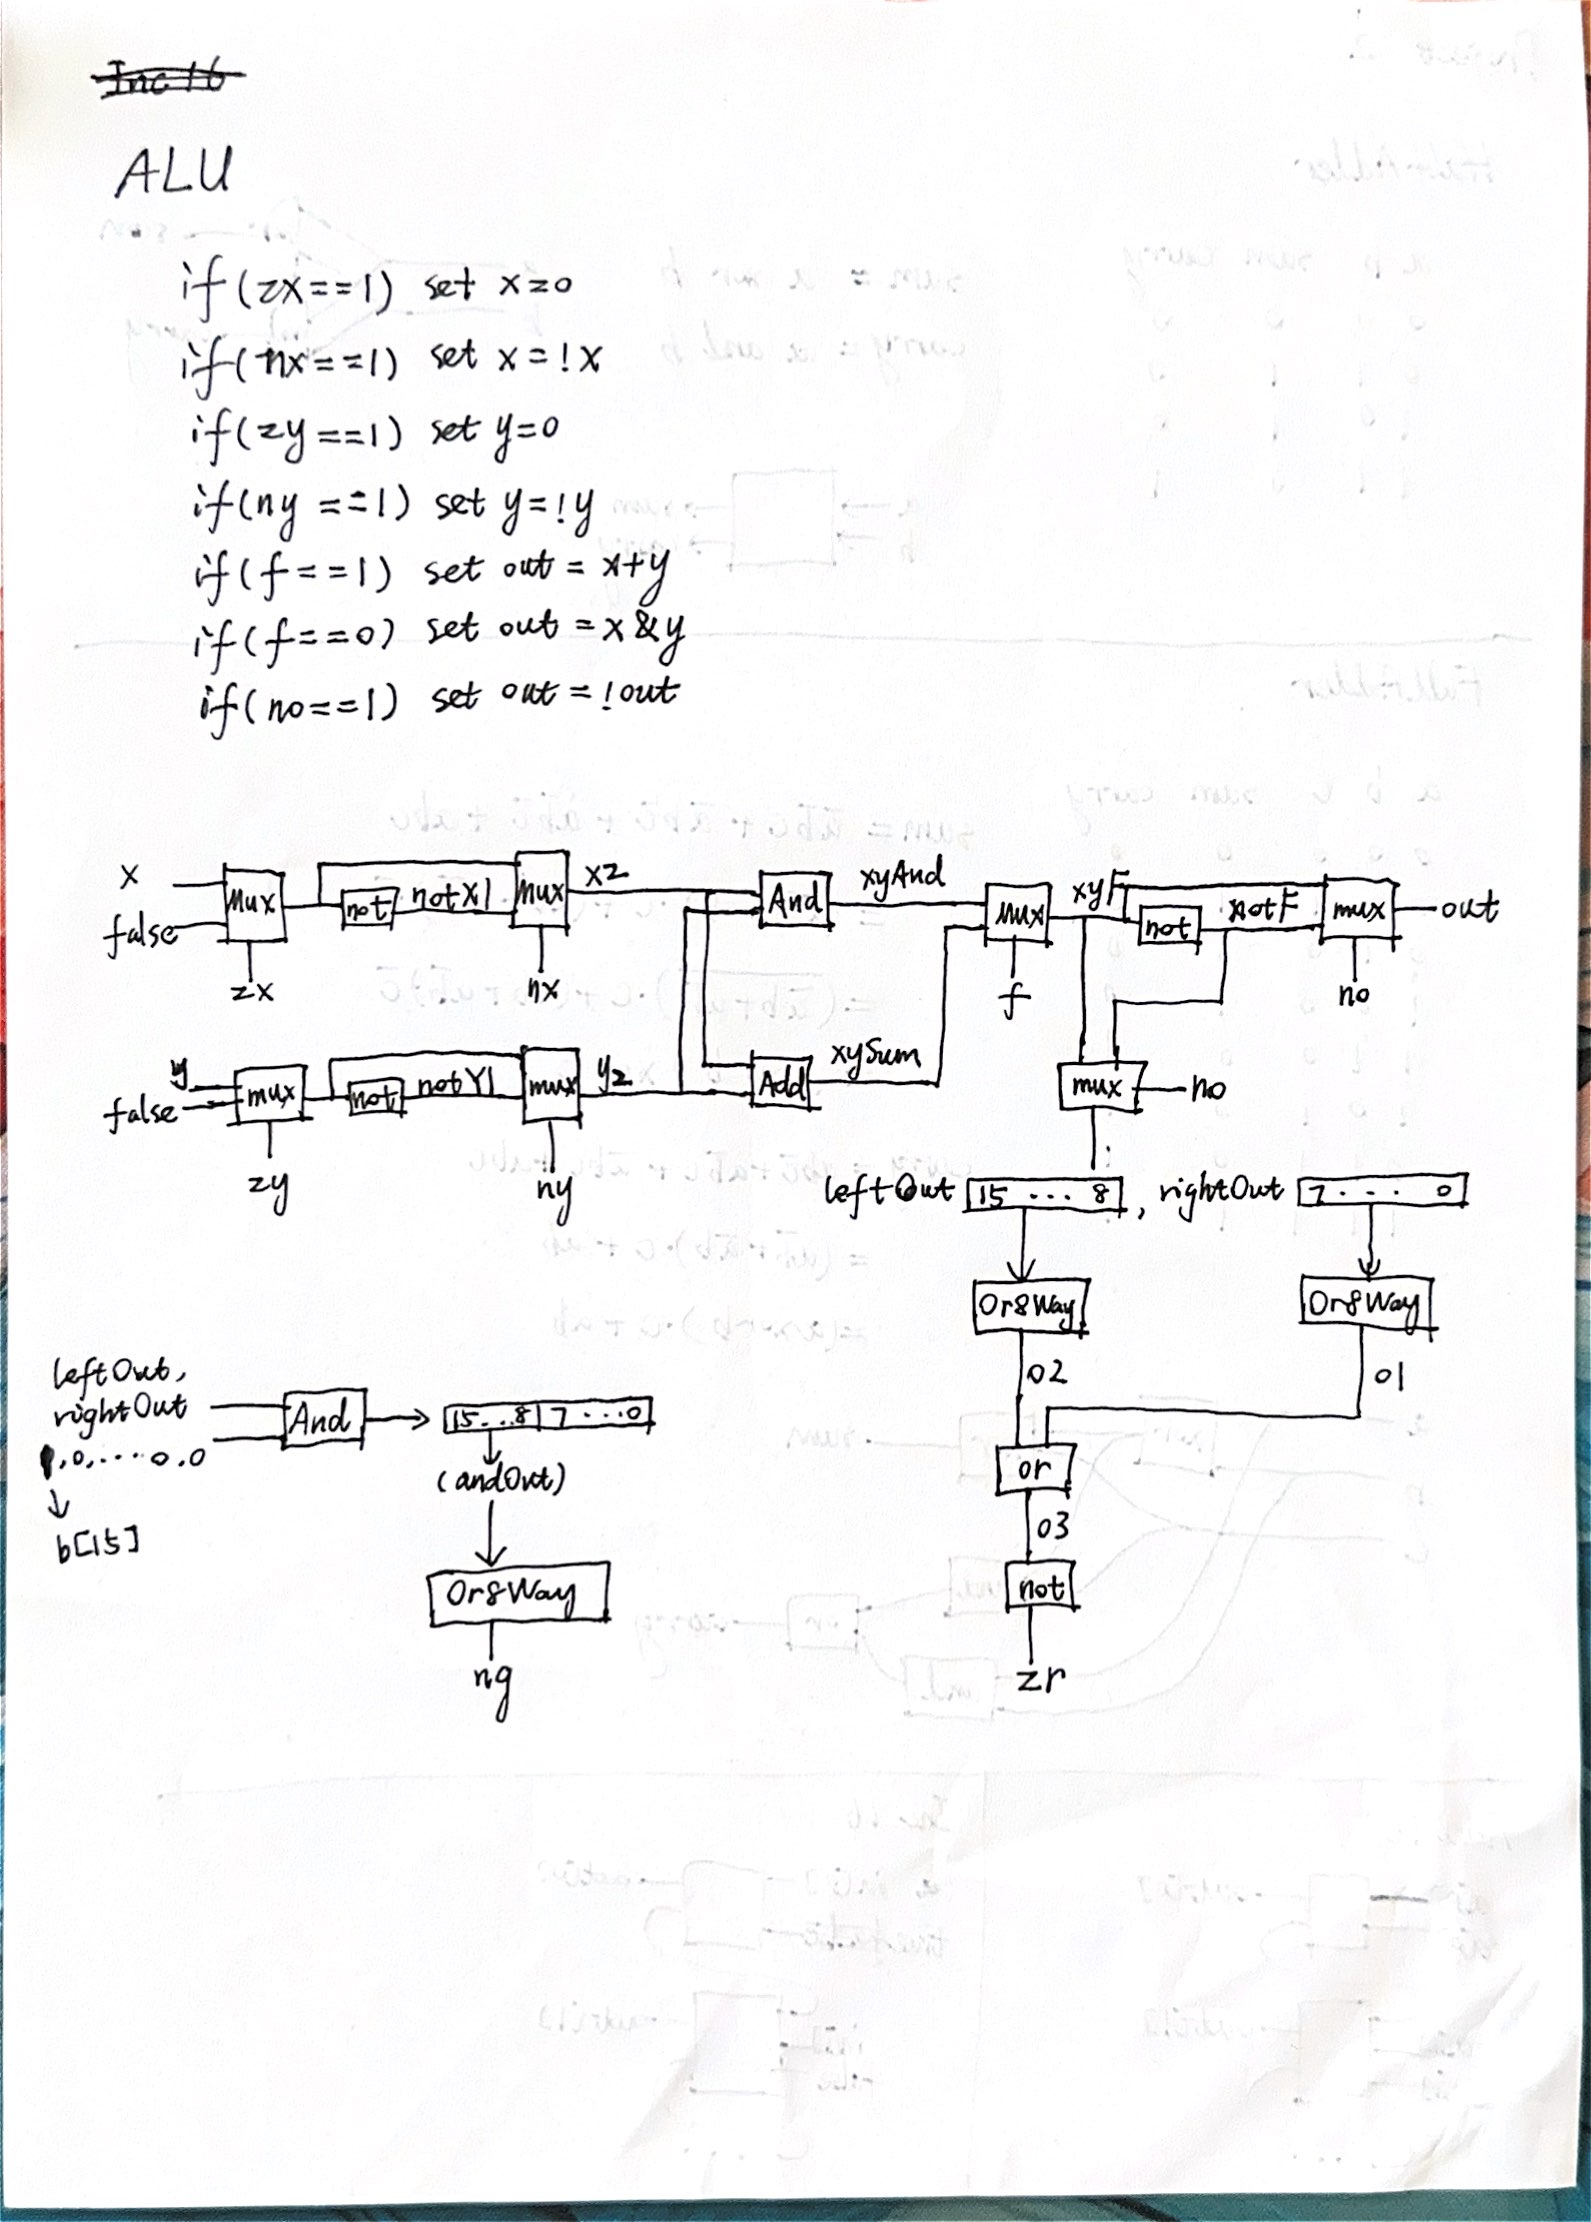 Inc16
ALU
if(zx==1) set x=0
if(nx==1) set x=!x
if(zy==1) set y=0
if(ny==1) set y=!y
if(f==1) set out=x+y
if(f==0) set out=x&y
if(no==1) set out=!out
x
false
Mux
zx
not
notX1
mux
nx
x2
And
xyAnd
mux
f
xyF
not
notF
mux
no
out
y
false
mux
zy
not
notY1
mux
ny
y2
Add
xySum
mux
no
leftOut 15 ... 8, rightOut 7 ... 0
Or8Way
Or8Way
02
01
or
03
not
zr
leftOut,
rightOut
1,0,....0,0
b[15]
And
15...8 7...0
(andOut)
Or8Way
ng